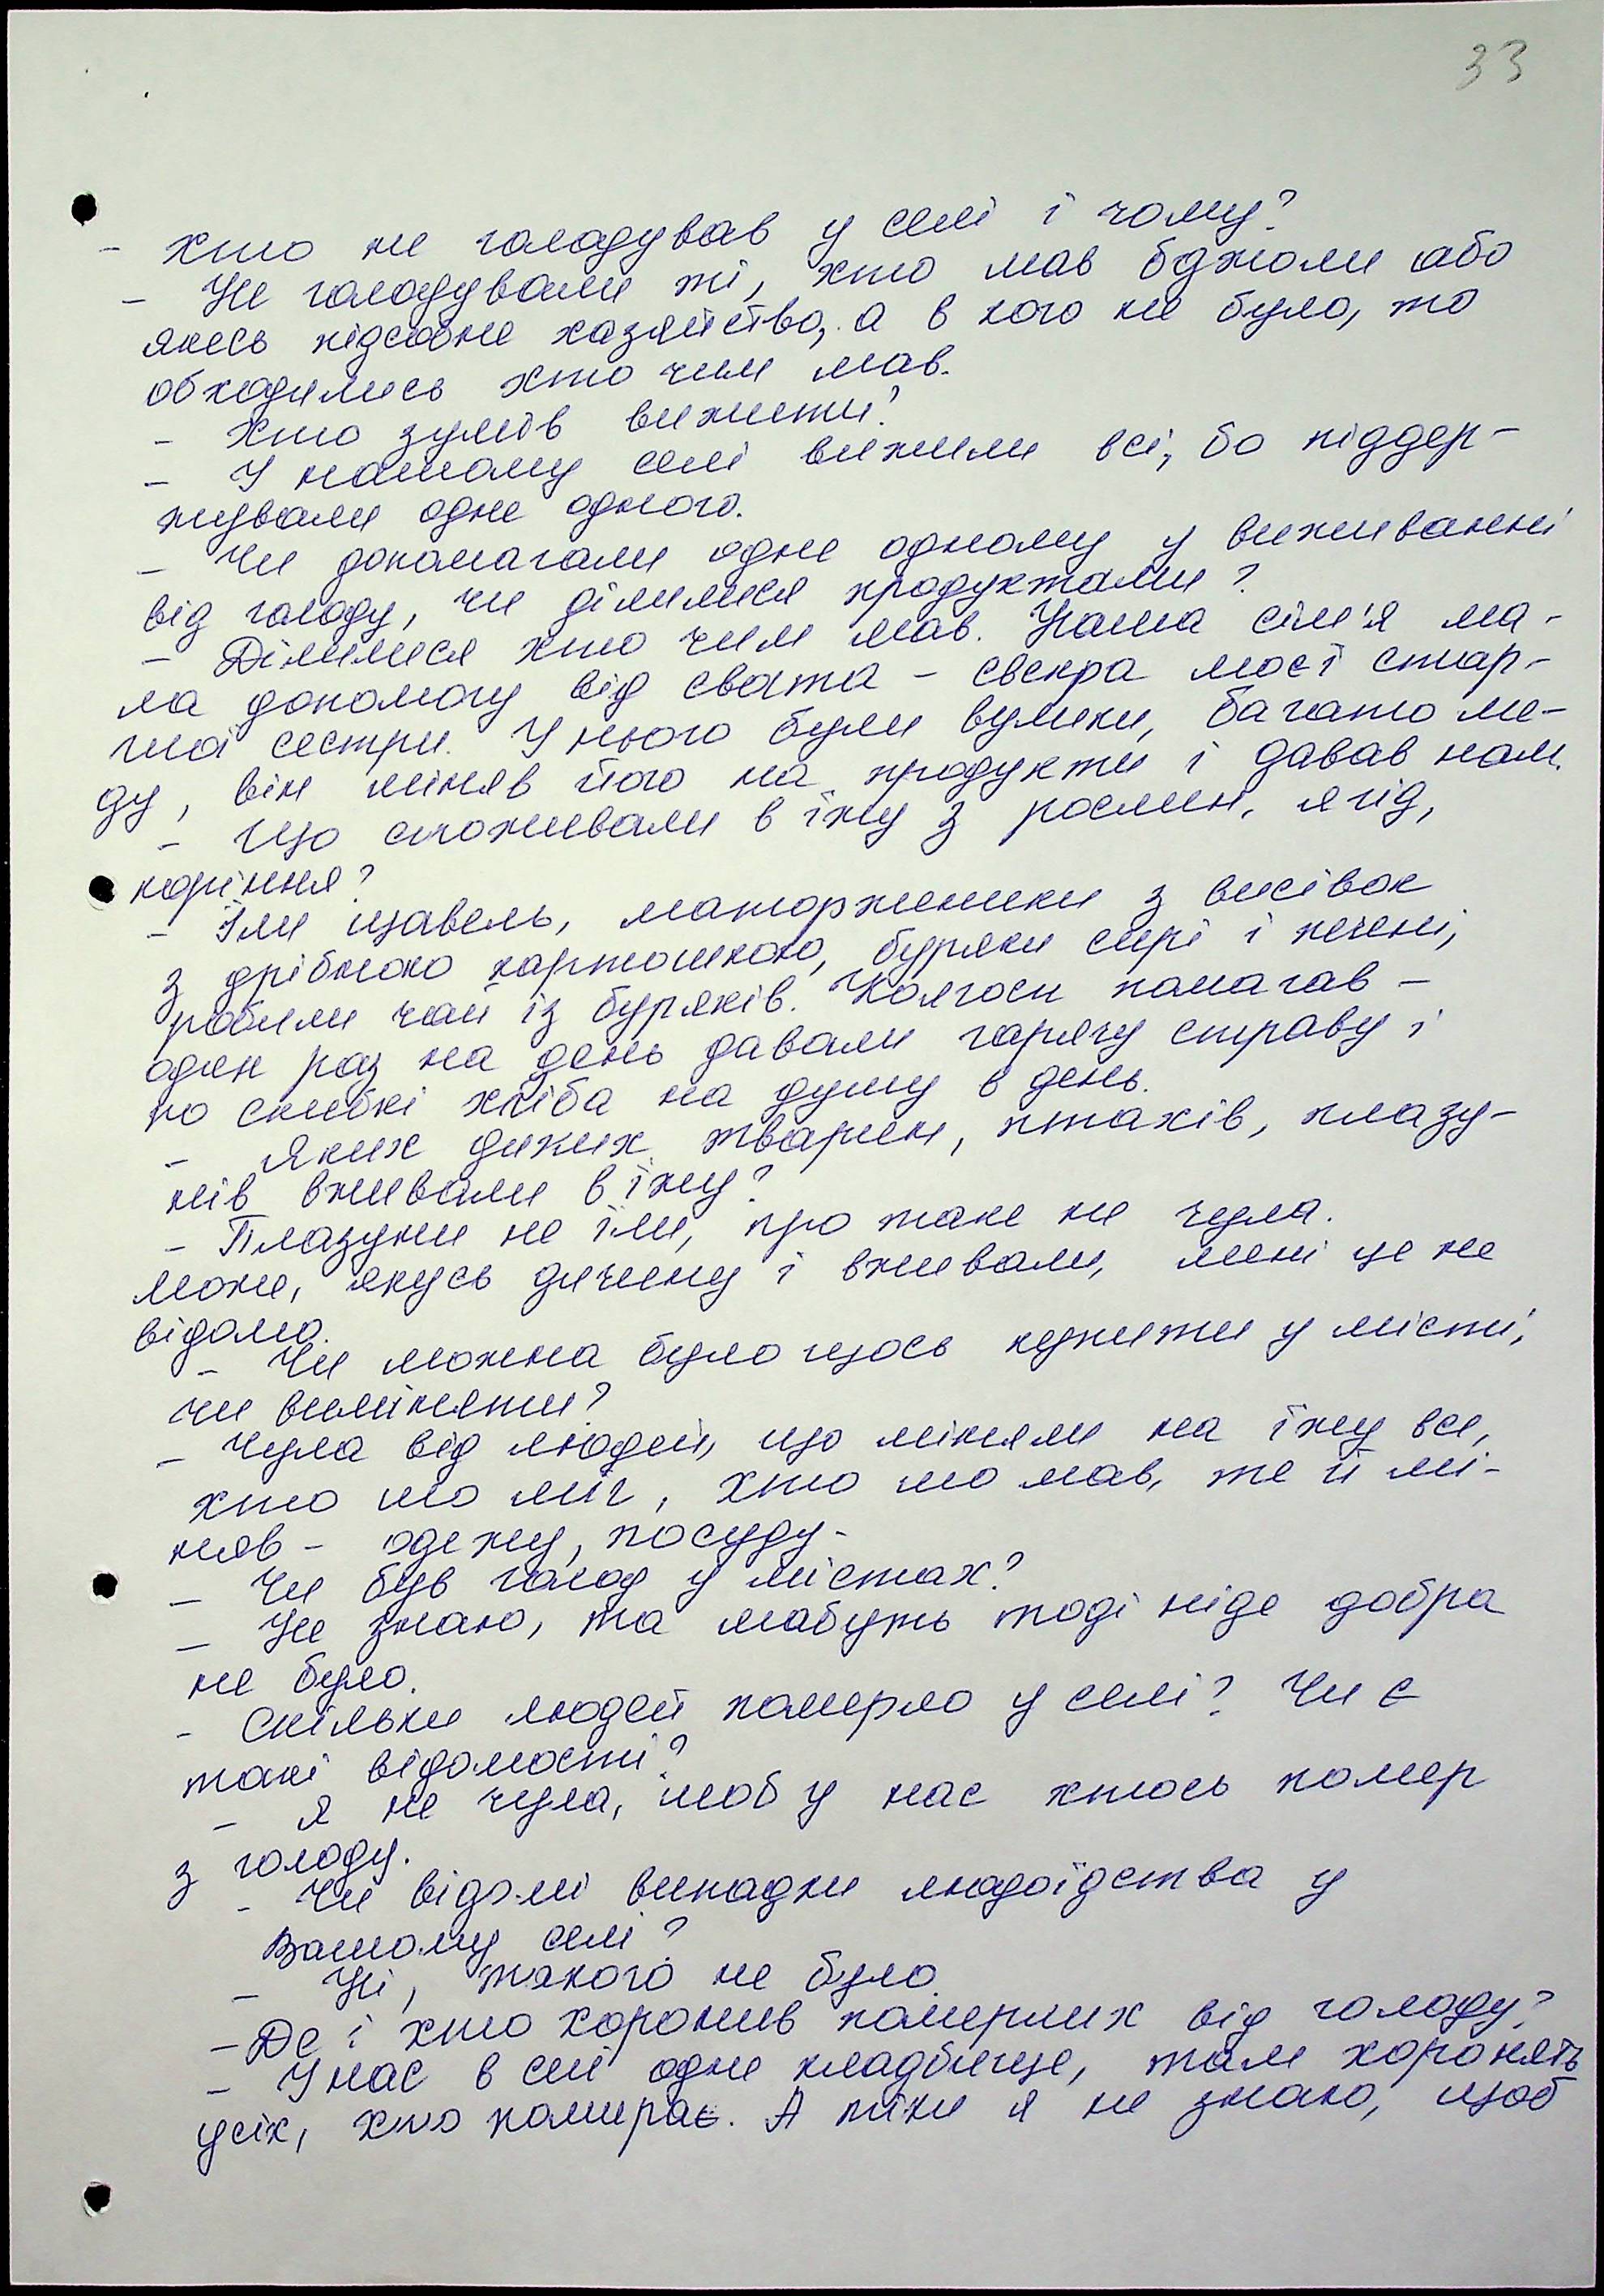 33
- Хто не голодував у селі і чому?
- Не голодували ті, хто мав бджоли або
якесь підсобне хазяйство, а в кого не було, то
обходились хто чим мав.
- Хто зумів вижити?
- У нашому селі вижили всі, бо піддер-
жували одне одного.
- Чи допомагали одне одному у виживанні
від голоду, чи ділилися продуктами?
- Ділилися хто чим мав. Наша сім'я ма-
ла допомогу від свата - свекра моєї стар-
шої сестри. У нього були вулики, багато ме-
ду, він міняв його на продукти і давав нам.
- Що споживали в їжу з рослин, ягід,
коріння?
- Їли щавель, маторженики з висівок
з дрібною картошкою, буряки сирі і печені,
робили чай із буряків. Колгосп помагав -
один раз на день давали гарячу страву і
по скибкі хліба на душу в день.
- Яких диких тварин, птахів, плазу-
нів вживали в їжу?
- Плазуни не їли, про таке не чула.
Може, якусь дичину і вживали, мені це не
відомо.
- Чи можна було щось купити у місті,
чи виміняти?
- Чула від людей, що міняли на їжу все,
хто шо міг, хто шо мав, те й мі-
няв - одежу, посуду.
- Чи був голод у містах?
- Не знаю, та мабуть тоді ніде добра
не було.
- Скільки людей померло у селі? Чи є
такі відомості?
- Я не чула, шоб у нас хтось помер
з голоду.
- Чи відомі випадки людоїдства у
Вашому селі?
- Ні, такого не було.
- Де і хто хоронив померлих від голоду?
- У нас в селі одне кладбище, там хоронять
усіх, хто помирає. А тіки я не знаю, щоб